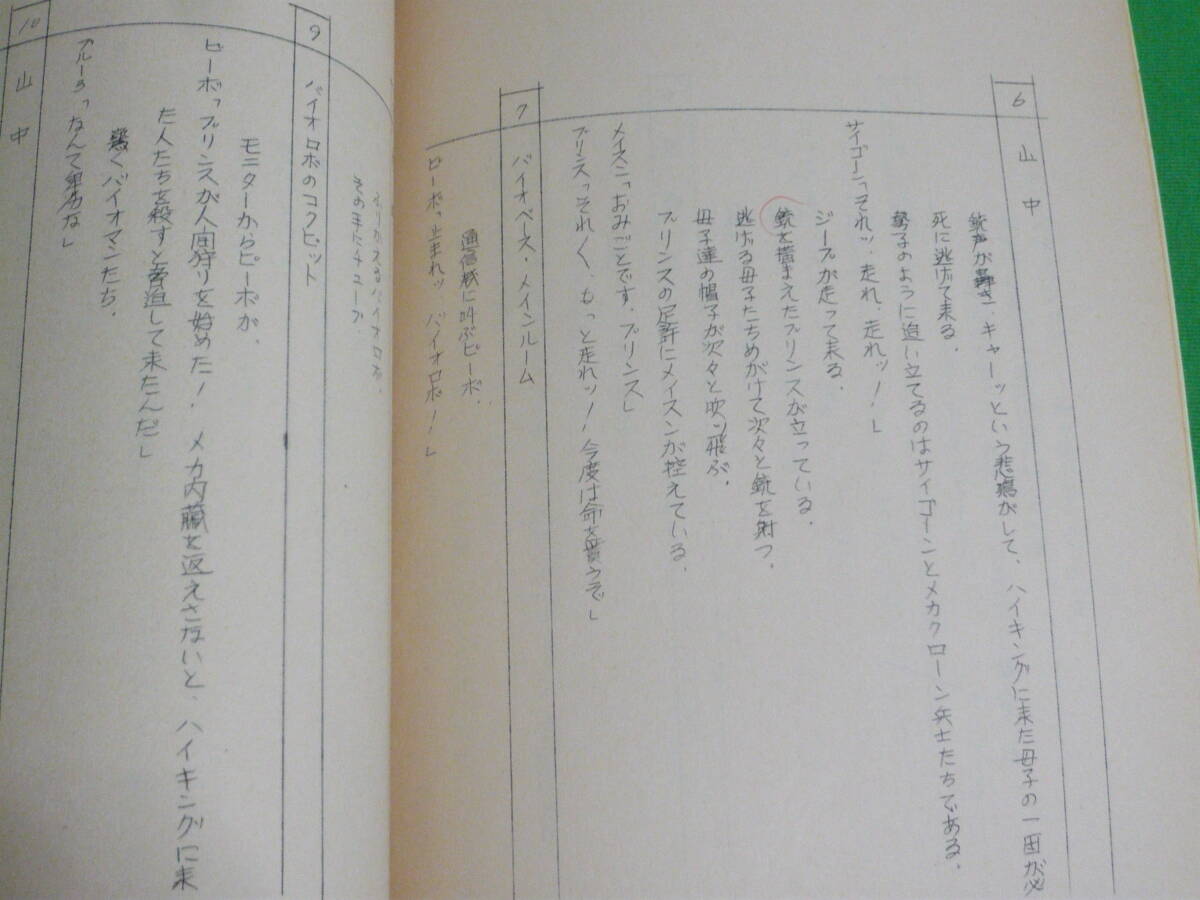 6 山中
銃声が轟き、キャーッという悲鳴がして、ハイキングに来た母子の一団が必
死に逃げて来る。
勢子のように追い立てるのはサイゴーンとメカクローン兵士たちである。
サイゴーン「それッ、走れ、走れッ!」
ジープが走って来る。
銃を構えたプリンスが立っている。
逃げる母子たちめがけて次々と銃を射つ。
母子達の帽子が次々と吹ッ飛ぶ。
プリンスの足許にメイスンが控えている。
メイスン「おみごとです、プリンス」
プリンス「それ〱、もっと走れッ!今度は命を貰うぞ」
7 バイオベース・メインルーム
通信機に叫ぶピーボ。
ピーボ「止まれッ バイオロボ!」
ふりかえるバイオロボ。
その手にチューブ。
9 バイオロボのコクピット
モニターからピーボが、
ピーボ「プリンスが人間狩りを始めた! メカ内臓を返えさないと、ハイキングに来
た人たちを殺すと脅迫して来たんだ」
驚くバイオマンたち。
ブルー3「なんて卑劣な」
10 山中